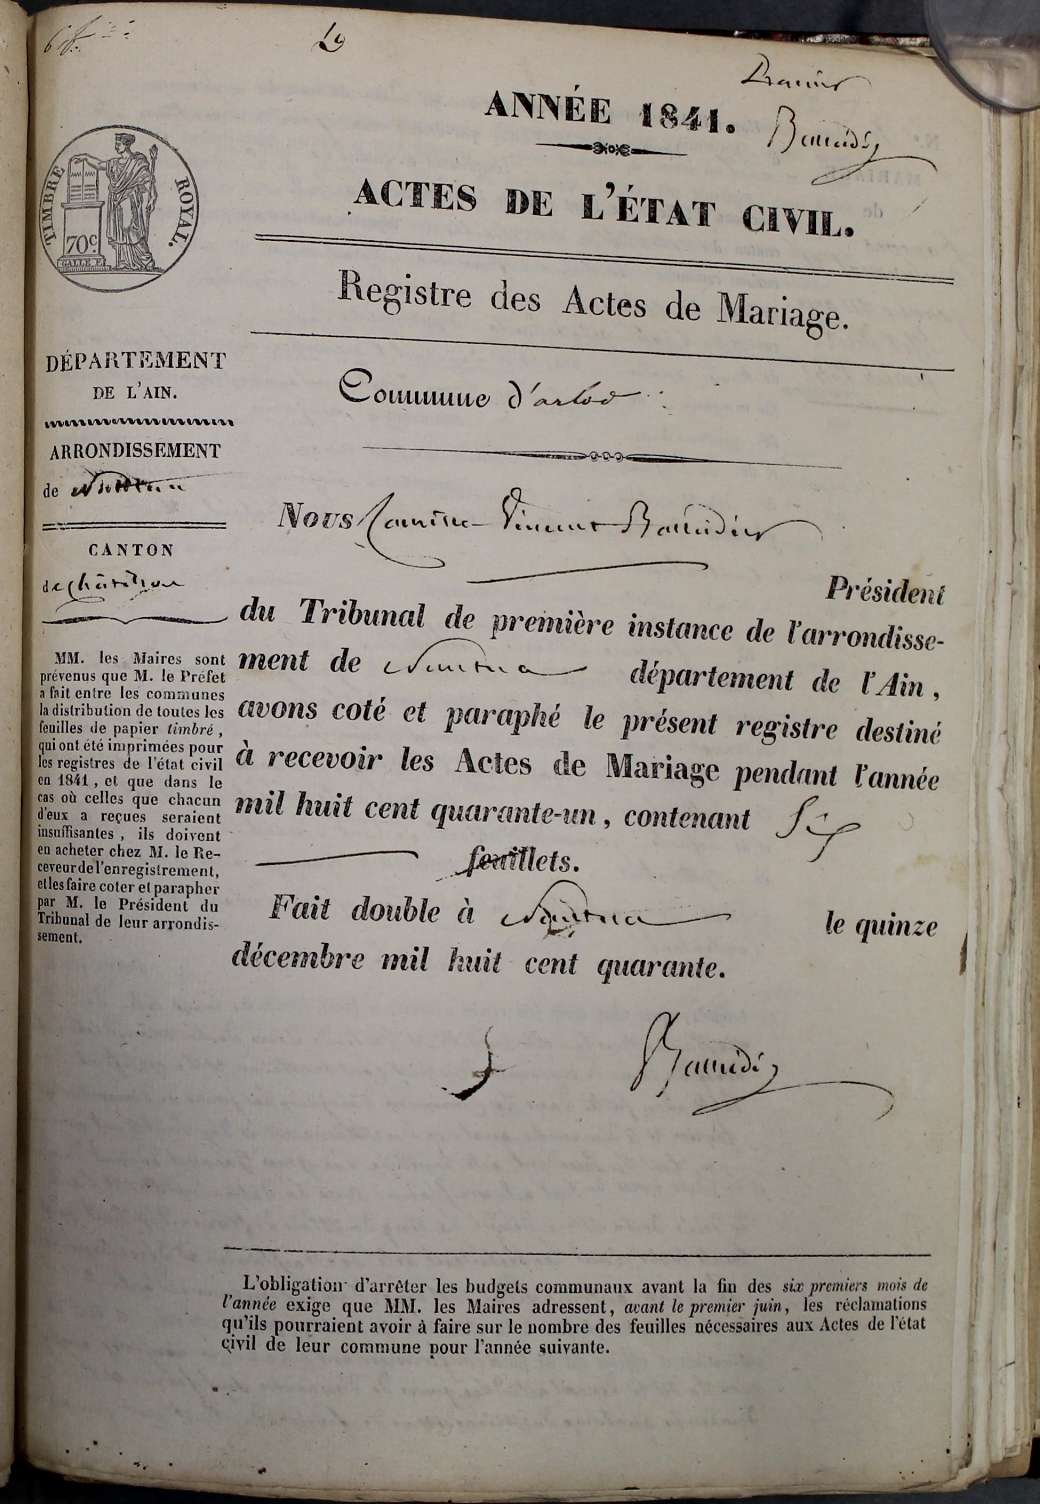 6 f.
ANNÉE 1841.
ACTES DE L'ÉTAT CIVIL.
TIMBRE ROYAL.
70c
GALLE F.
Registre des Actes de Mariage.
DÉPARTEMENT
DE L'AIN.
Commune d'arlod
ARRONDISSEMENT
de Nantua
CANTON
de Châtillon
MM. les Maires sont
prévenus que M. le Préfet
a fait entre les communes
la distribution de toutes les
feuilles de papier timbré,
qui ont été imprimées pour
les registres de l'état civil
en 1841, et que dans le
cas où celles que chacun
d'eux a reçues seraient
insuffisantes, ils doivent
en acheter chez M. le Re-
ceveur de l'enregistrement,
et les faire coter et parapher
par M. le Président du
Tribunal de leur arrondis-
sement.
Nous Vincent
Président
du Tribunal de première instance de l'arrondisse-
ment de Nantua département de l'Ain,
avons coté et paraphé le présent registre destiné
à recevoir les Actes de Mariage pendant l'année
mil huit cent quarante-un, contenant Six
feuillets.
Fait double à Nantua le quinze
décembre mil huit cent quarante.
L'obligation d'arrêter les budgets communaux avant la fin des six premiers mois de
l'année exige que MM. les Maires adressent, avant le premier juin, les réclamations
qu'ils pourraient avoir à faire sur le nombre des feuilles nécessaires aux Actes de l'état
civil de leur commune pour l'année suivante.